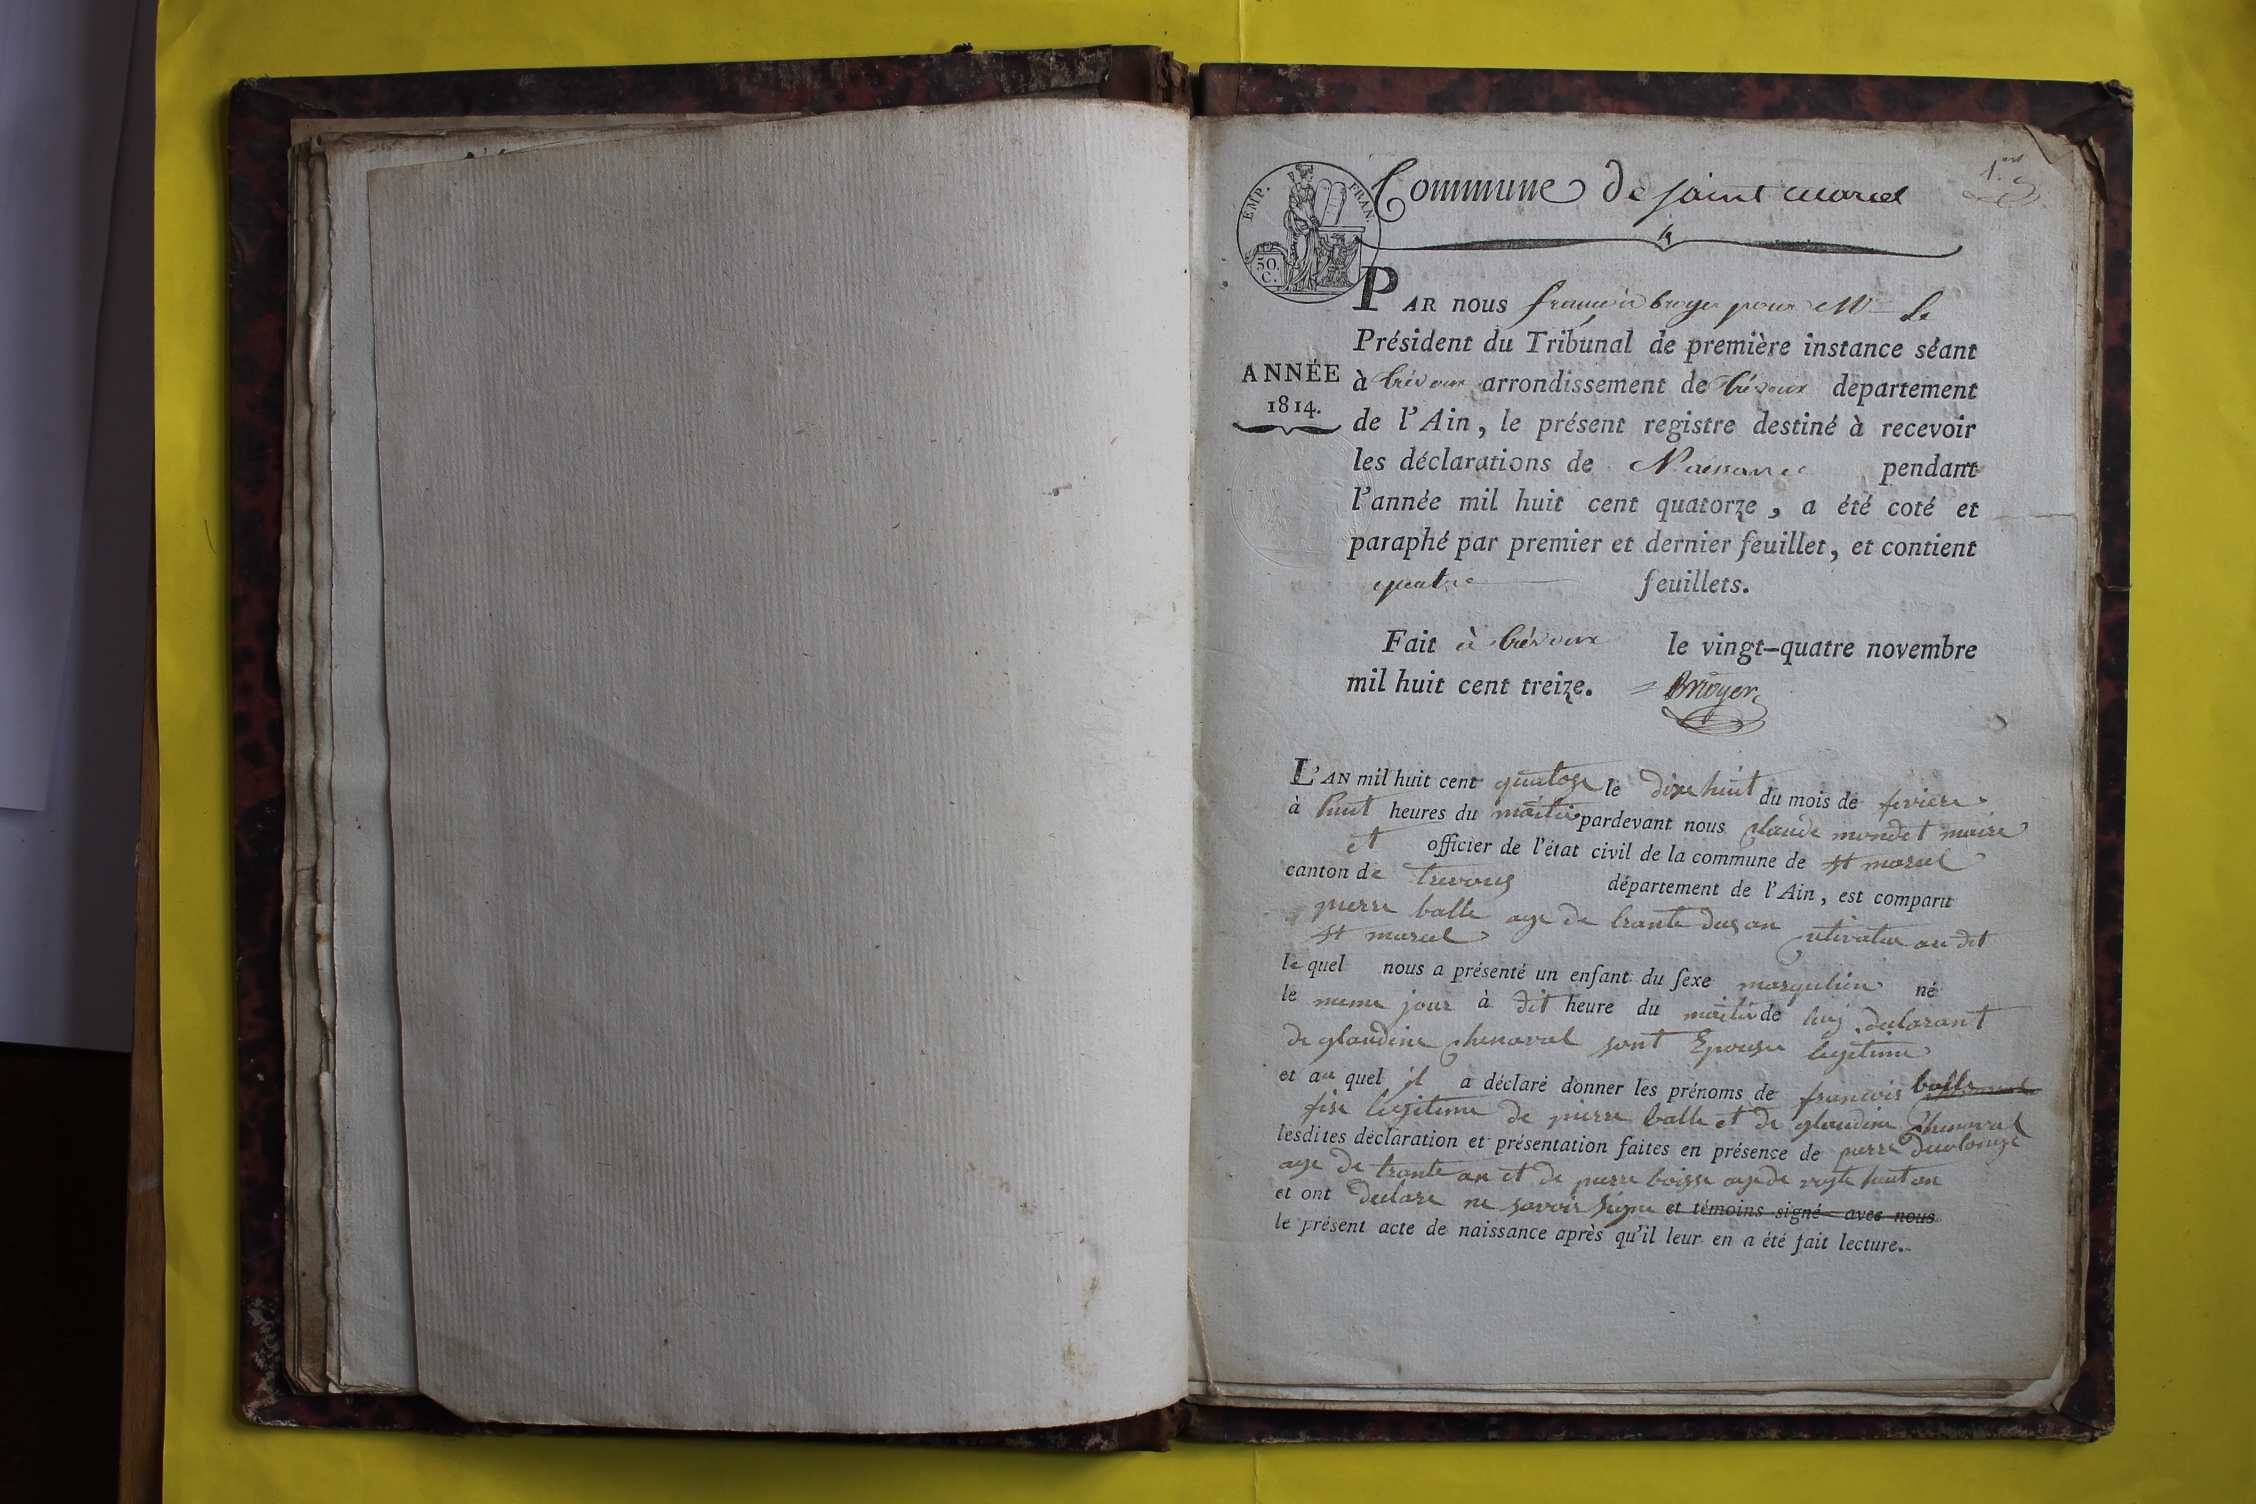 Commune de saint marcel
1.er
EMP. FRAN.
50. C.
PAR nous françois broyer pour Mr Le
Président du Tribunal de première instance séant
ANNÉE
1814.
à trévoux arrondissement de trévoux departement
de l'Ain, le présent registre destiné à recevoir
les déclarations de Naissance pendant
l'année mil huit cent quatorze, a été coté et
paraphé par premier et dernier feuillet, et contient
quatre feuillets.
Fait à trévoux le vingt-quatre novembre
mil huit cent treize. Broyer
L'AN mil huit cent quatorze le dixe huit du mois de
à huit heures du matin pardevant nous claude mondet maire
et officier de l'état civil de la commune de st marcel
canton de département de l'Ain, est comparu
pierre balle age de trante an au dit
st marcel
le quel nous a présenté un enfant du sexe masqulien né
le meme jour à dit heure du matin de luy declarant
de glaudine chenaval sont Epouse legitime
et au quel il a déclaré donner les prénoms de francois balle
legitime de pierre balle et de glaudine chenaval
lesdites déclaration et présentation faites en présence de pierre
age de trante an et de pierre boisse age de huit an
et ont declare ne savoir signe et témoins signé avec nous
le présent acte de naissance après qu'il leur en a été fait lecture.